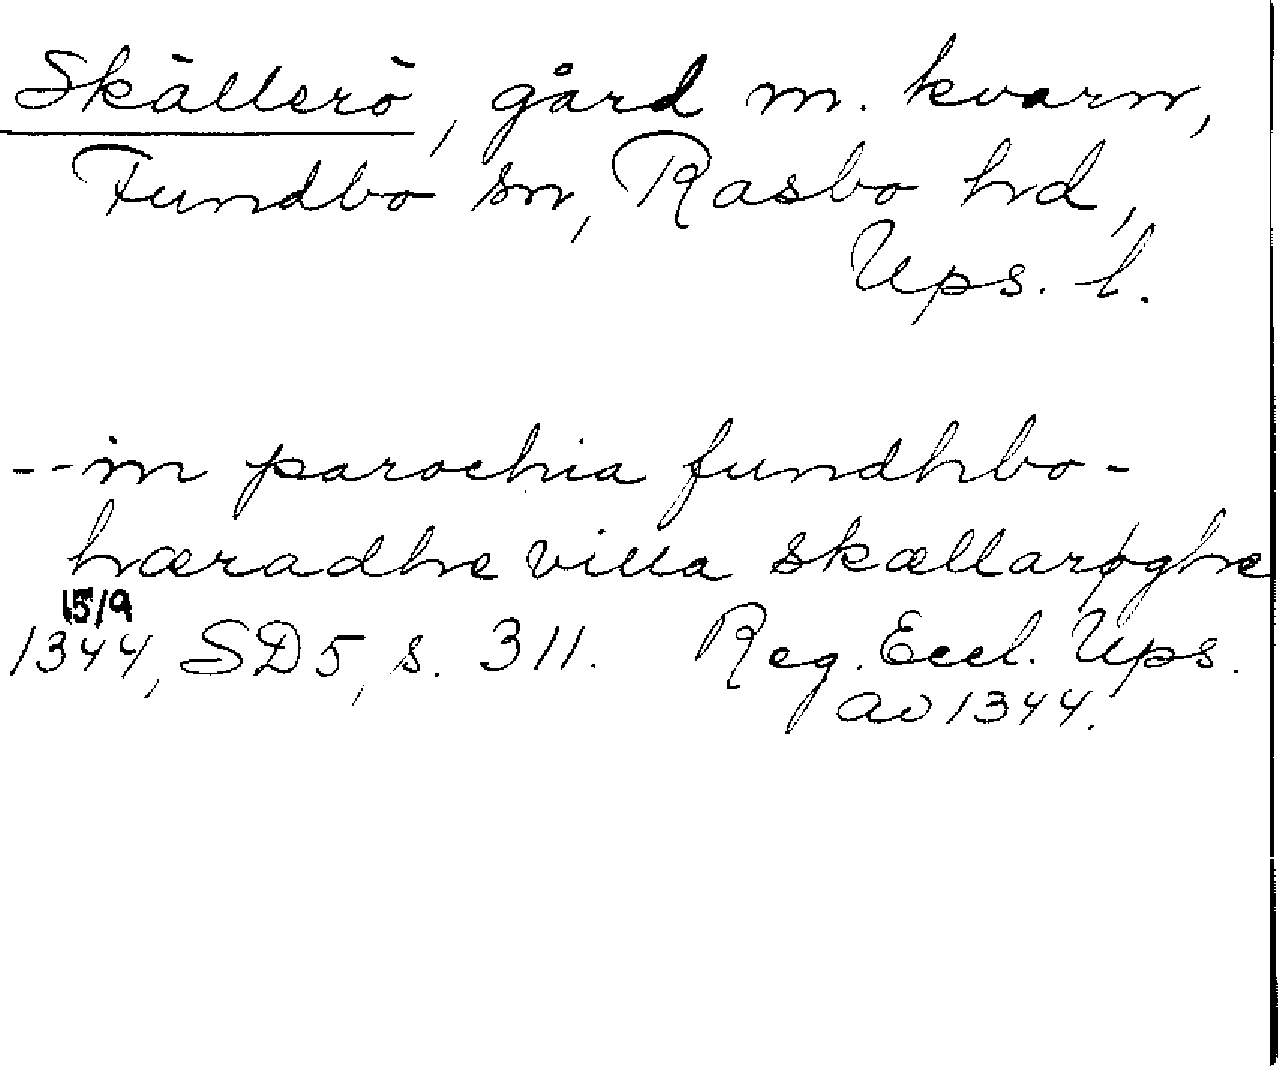 Skällerö, gård m. kvarn,
Fundbo sn, Rasbo hd,
Ups. l.
-- in parochia fundhbo-
hæradhe villa skællarøghe
15/9
1344, SD5, s. 311. Reg. Eccl. Ups.
av 1344.